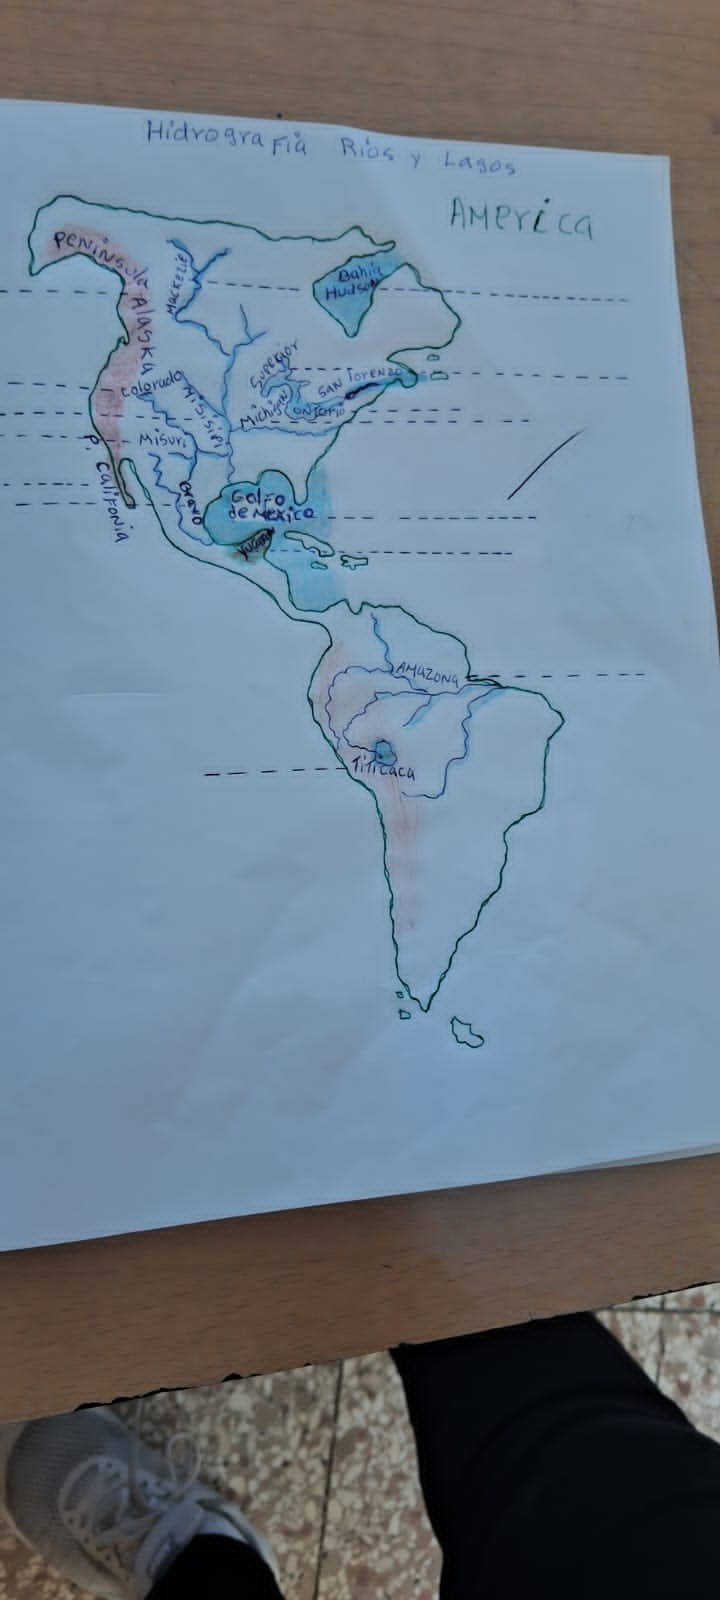 Hidrografia Rios y Lagos
America
Peninsula Alaska
Mackezie
Bahia
Hudson
Superior
Colorado
Misisipi
Michigan
ontario
San lorenzo
Misuri
P. Califonia
Bravo
Golfo
de Mexico
Yucatan
Amazona
Titicaca